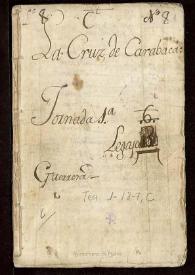 8 Cª Nº 8
La Cruz de Carabaca
Jornada 1.ª 6.
Legajo
Guerrero
Tea 1-18-7, C